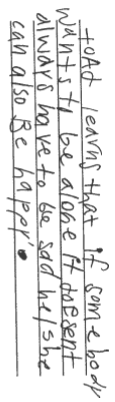 toAd learns that if somebody
wants t be alone it doesent
always have to be sad he/she
can also Be happy.